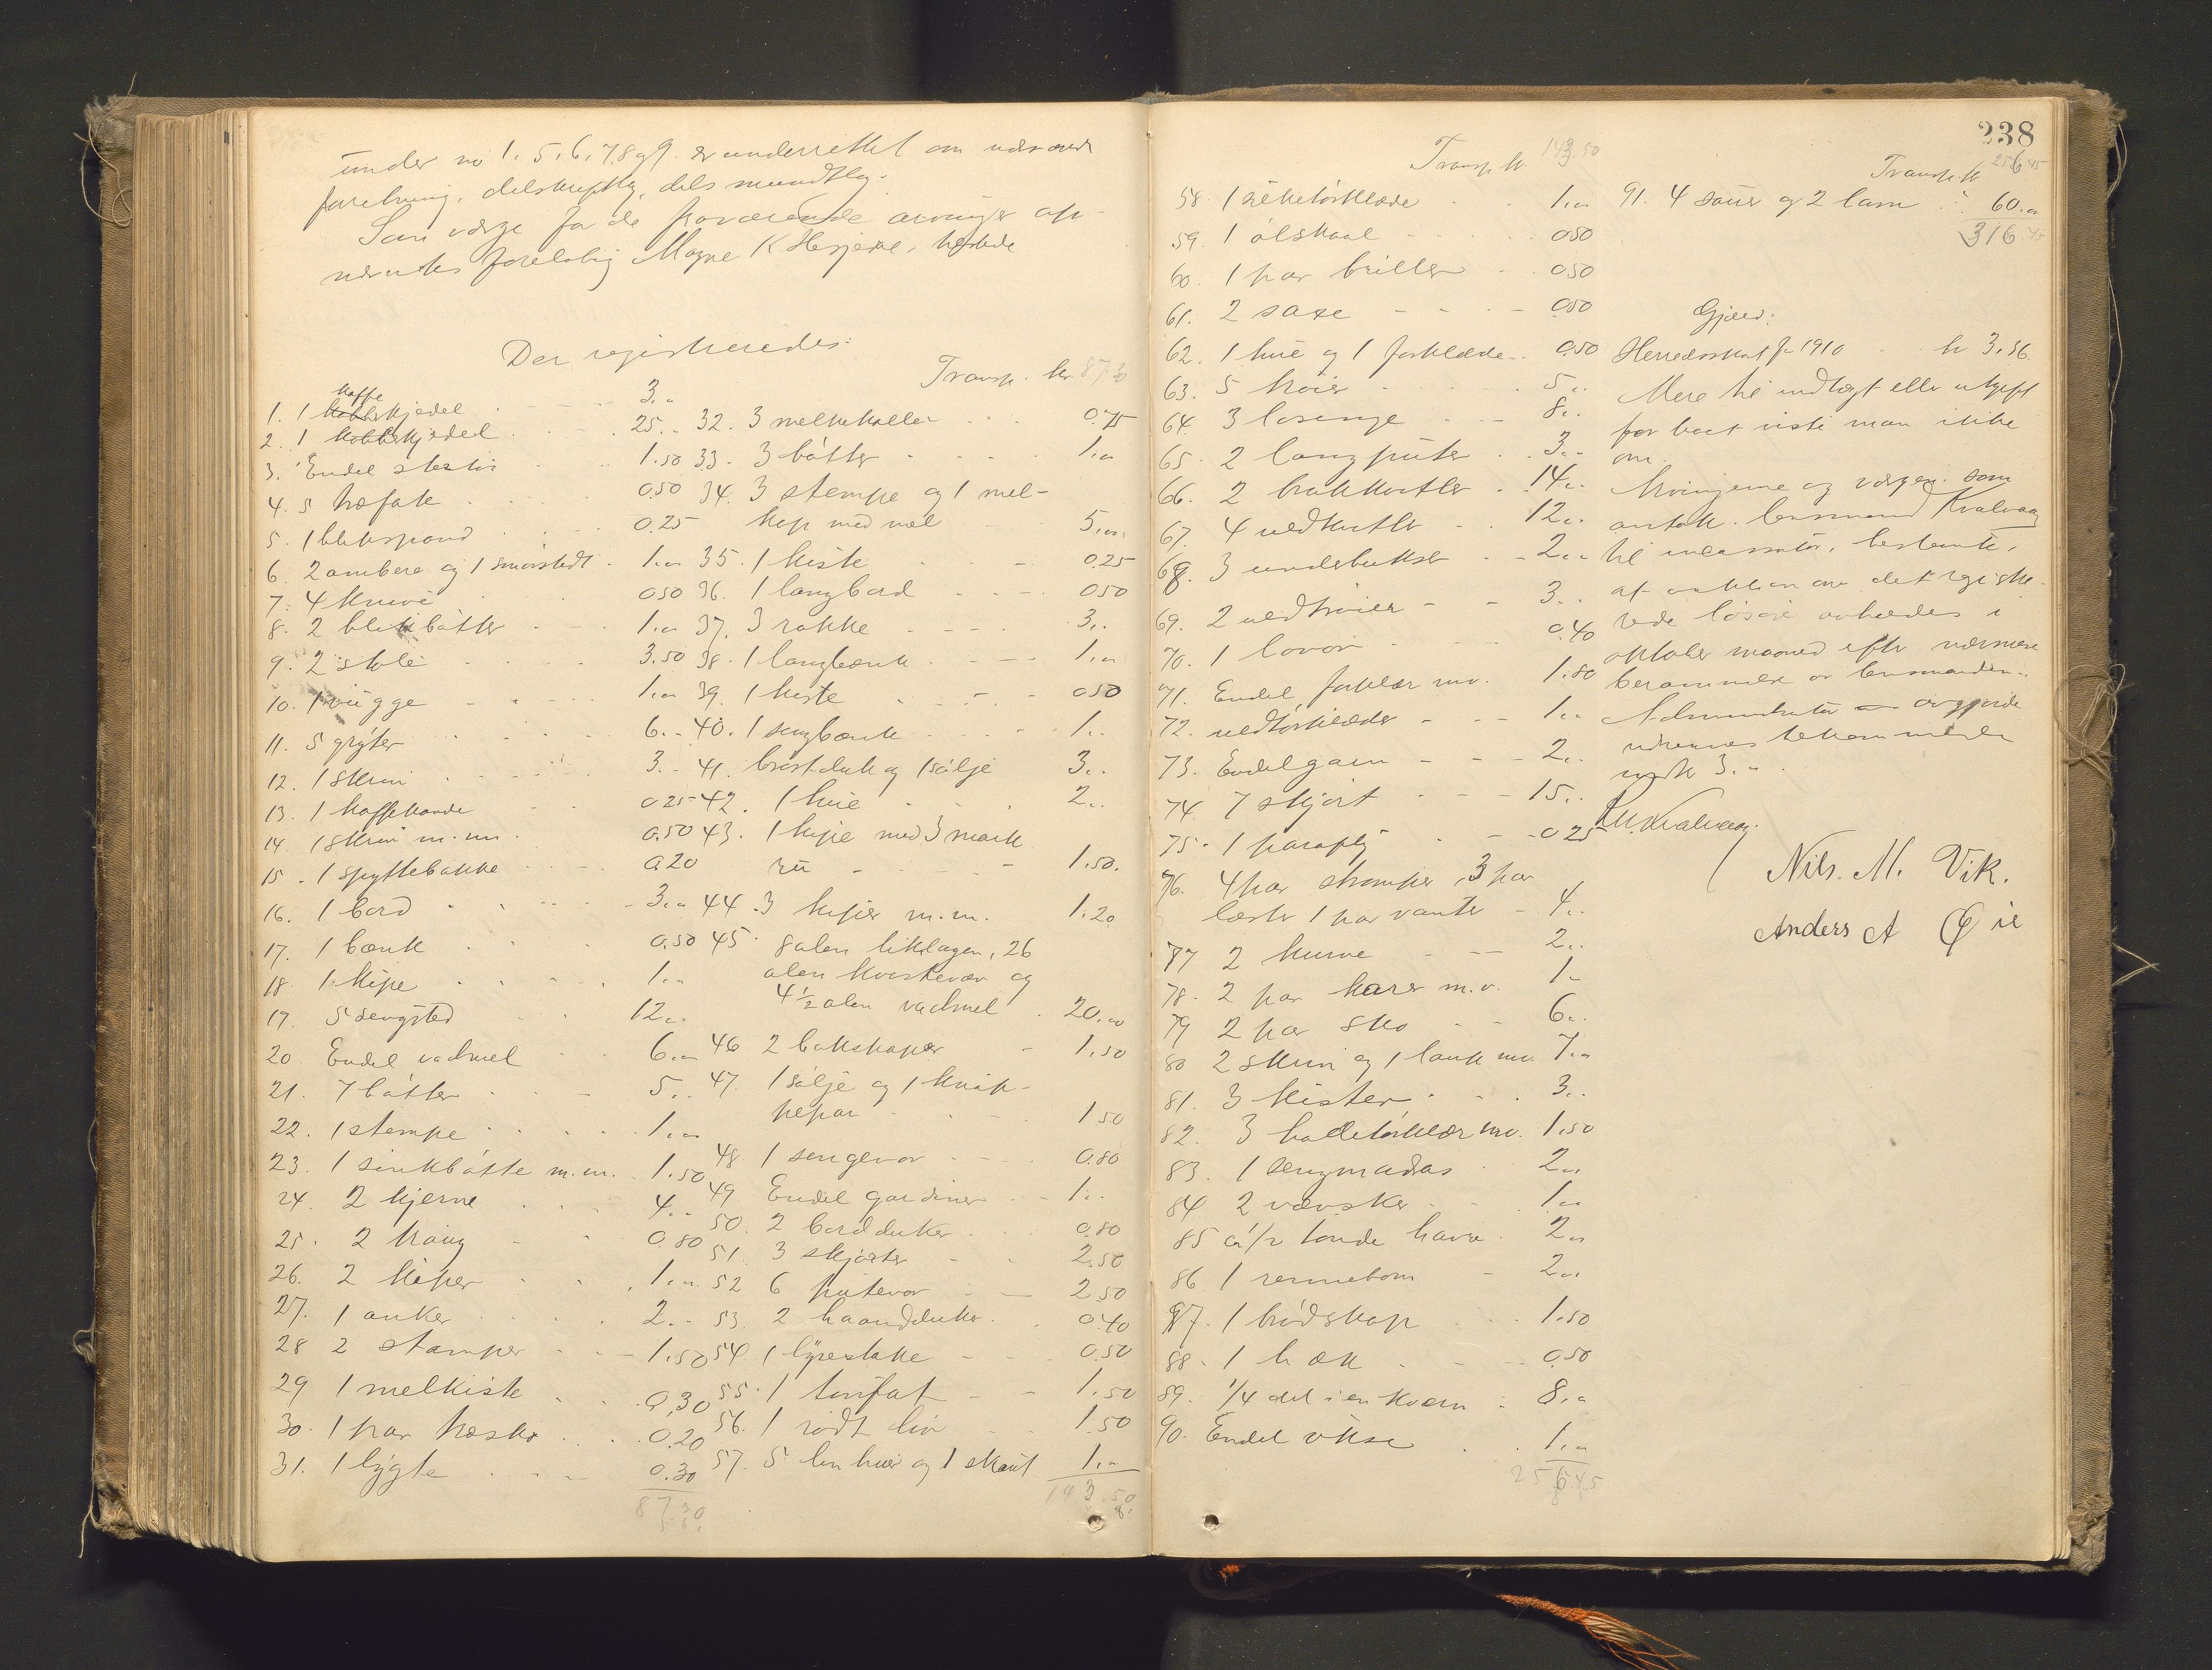 under no 1. 5, 6, 7, 8 og 9. er underrettet om nærværende
forretning, dels skriftlig, dels mundtlig.
Som værge for de fraværende arvinger op-
nævntes foreløbig Magne K Hesjene, herstede
Der registreredes:
1. 1 kaffekjedel 3.„
2. 1 kobbekjedel 25.„
3. Endel stentøi 1.50
4. 5 træfate 0.50
5. 1 blikspand 0.25
6. 2 ambere og 1 smørstedt 1.„
7. 4 knive 0.50
8. 2 blikbøtter 1.„
9. 2 stole 3.50
10. 1 vugge 1.„
11. 5 gryter 6.„
12. 1 skrin 3.„
13. 1 kaffekande 0.25
14. 1 skrin m.m. 0.50
15. 1 spyttebakke 0.20
16. 1 bord 3.„
17. 1 bænk 0.50
18. 1 kipe 1.„
19. 5 sengsted 12.„
20 Endel vadmel 6.„
21. 7 bøtter 5.„
22. 1 stempe 1.„
23. 1 sinkbøtte m.m. 1.50
24. 2 kjerne 4.„
25. 2 traug 0.80
26. 2 kiper 1.„
27. 1 anker 2.„
28 2 stamper 1.50
29 1 melkiste 0.30
30. 1 par træsko 0.20
31. 1 lygte 0.30
87.30
Transp. kr 87.30
32. 3 melkekoller 0.75
33. 3 bøtter 1.„
34. 3 stempe og 1 mel-
kop med mel 5.„
35. 1 kiste 0.25
36. 1 langbord 0.50
37. 3 rokke 3.„
38. 1 langbænk 1.„
39. 1 kiste 0.50
40. 1 sengbænk 1.„
41. brystduk og 1 sølje 3.„
42. 1 hue 2.„
43. 1 kipe med 3 mark
ull 1.50.
44. 3 kiper m.m. 1.20
45. 8 alen liklagen, 26
alen kvistevær og
4 1/2 alen vadmel 20.„
46 2 bokskaper 1.50
47. 1 sølje og 1 knap-
pepar 1.50
48 1 sengevor 0.80
49 Endel gardiner 1.„
50. 2 bordduker 0.80
51. 3 skjorter 2.50
52 6 putevor 2.50
53. 2 haandduker 0.40
54 1 lysestake 0.50
55. 1 tinfat 1.50
56. 1 rødt liv 1.50
57. 5 lin huer og 1 skaut 1.„
143.50
238
Transp. kr 143.50
58. 1 silketørklæde 1.„
59. 1 ølskaal 0.50
60. 1 par briller 0.50
61. 2 saxe 0.50
62. 1 hue og 1 forklæde 0.50
63. 5 trøier 5.„
64. 3 løsenge 8.„
65. 2 langputer 3.„
66. 2 brakkutler 14.„
67. 4 uldkutler 12.„
68. 3 underbukser 2.„
69. 2 uldtrøier 3.„
70. 1 lovor 0.40
71. Endel forklær mv. 1.80
72. uldtørklæder 1.„
73. Endel garn 2.„
74. 7 skjørt 15.„
75. 1 paraply 0.25
76. 4 par strømper, 3 par
læster 1 par vanter 4.„
77 2 kurve 2.„
78. 2 par karer m.v. 1.„
79 2 par sko 6.„
80 2 skrin og 1 lauk mv. 7.„
81. 3 kister 3.„
82. 3 halstørklær mv. 1.50
83. 1 sengmadas 2.„
84 2 vævsker 1.„
85 ca 1/2 tønde havre 2.„
86. 1 rennebom 2.„
87. 1 brødskap 1.50
88. 1 h æk 0.50
89. 1/4 del i en kværn 8.„
90. Endel økse 1.„
256.45
Transp. kr 256.45
91. 4 sauer og 2 lam 60.„
316.45
Gjæld:
Herredsskat for 1910 kr 3.36
Mere til indtægt eller utgift
for boet viste man ikke
om.
Arvingerne og værgen som
antok lensmand Kvalvaag
til incassator, bestemte,
at auktion over det registre-
rede løsøre avholdes i
oktober maaned efter nærmere
berammelse av lensmanden.
Administrator avgjorde
m kr 3.„
K. Kvalvaag.
Nils. M. Vik.
Anders A Øie